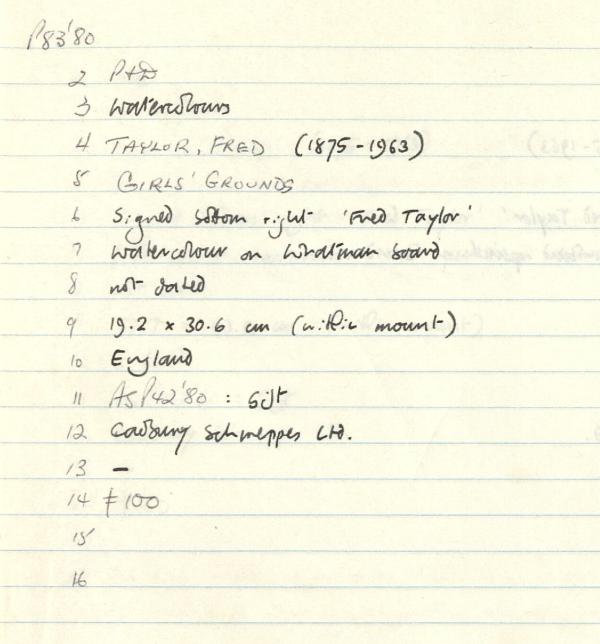 P83'80
2 P+D
3 Watercolours
4 TAYLOR, FRED (1875-1963)
5 GIRLS' GROUNDS
6 Signed bottom right 'Fred Taylor'
7 Watercolour on Whatman board
8 not dated
9 19.2 x 30.6 cm (within mount)
10 England
11 ASP42'80 : Gift
12 Cadbury Schweppes Ltd.
13 –
14 £100
15
16